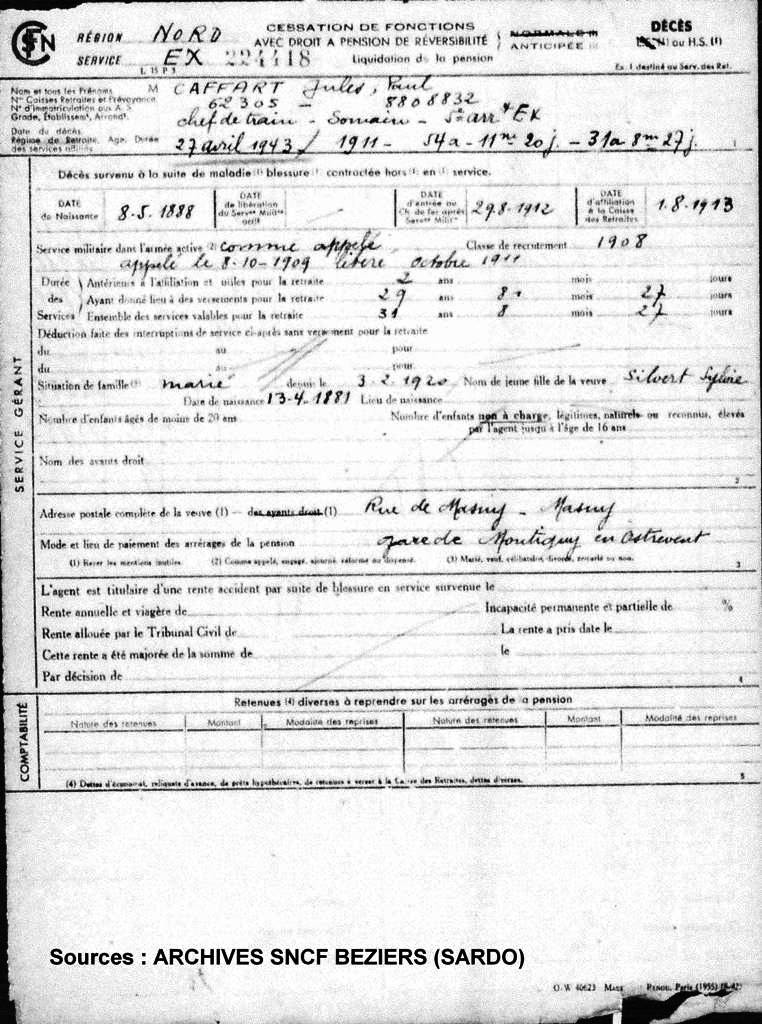 SNCF
RÉGION NORD
SERVICE EX 224418
L. 15 P 5
CESSATION DE FONCTIONS
AVEC DROIT A PENSION DE RÉVERSIBILITÉ
Liquidation de la pension
NORMALE (1)
ANTICIPÉE (1)
DÉCÈS
ou H.S. (1)
Ex. 1 destiné au Serv. des Ret.
Nom et tous les Prénoms M CAFFART Jules, Paul
Nos Caisses Retraites et Prévoyance 62305 - 8808832
N° d'immatriculation aux A. S.
Grade, Établissemt, Arrondt. chef de train - Somain - 5e arrt EX
Date du décès
Régime de Retraite, Age, Durée des services validés 27 avril 1943 / 1911 - 54a - 11m 20j - 31a 8m 27j
1
Décès survenu à la suite de maladie (1) blessure (1) contractée hors (1) en (1) service.
DATE de Naissance 8-5-1888
DATE de libération du Servce Militre actif
DATE d'entrée au Ch. de fer après Servce Militre 29.8.1912
DATE d'affiliation à la Caisse des Retraites 1.8.1913
Service militaire dans l'armée active (2) comme appelé Classe de recrutement 1908
appelé le 8-10-1909 libéré octobre 1911
Durée des Services
Antérieurs à l'affiliation et utiles pour la retraite 2 ans mois jours
Ayant donné lieu à des versements pour la retraite 29 ans 8 mois 27 jours
Ensemble des services valables pour la retraite 31 ans 8 mois 27 jours
Déduction faite des interruptions de service ci-après sans versement pour la retraite
du au pour
du au pour
Situation de famille (3) marié depuis le 3-2-1920 Nom de jeune fille de la veuve Silvert Sylvie
Date de naissance 13-4-1881 Lieu de naissance
Nombre d'enfants âgés de moins de 20 ans
Nombre d'enfants non à charge, légitimes, naturels ou reconnus, élevés par l'agent jusqu'à l'âge de 16 ans
Nom des ayants droit
2
SERVICE GÉRANT
Adresse postale complète de la veuve (1) — des ayants droit (1) Rue de Masny - Masny
Mode et lieu de paiement des arrérages de la pension gare de Montigny en Ostrevent
(1) Rayer les mentions inutiles. (2) Comme appelé, engagé, ajourné, réformé ou dispensé. (3) Marié, veuf, célibataire, divorcé, remarié ou non.
3
L'agent est titulaire d'une rente accident par suite de blessure en service survenue le
Rente annuelle et viagère de Incapacité permanente et partielle de %
Rente allouée par le Tribunal Civil de La rente a pris date le
Cette rente a été majorée de la somme de le
Par décision de
4
COMPTABILITÉ
Retenues (4) diverses à reprendre sur les arrérages de la pension
Nature des retenues Montant Modalité des reprises Nature des retenues Montant Modalité des reprises
(4) Dettes d'économat, reliquats d'avance, de prêts hypothécaires, de retenues à verser à la Caisse des Retraites, dettes diverses.
5
Sources : ARCHIVES SNCF BEZIERS (SARDO)
O. W. 40623 Paris (1955)